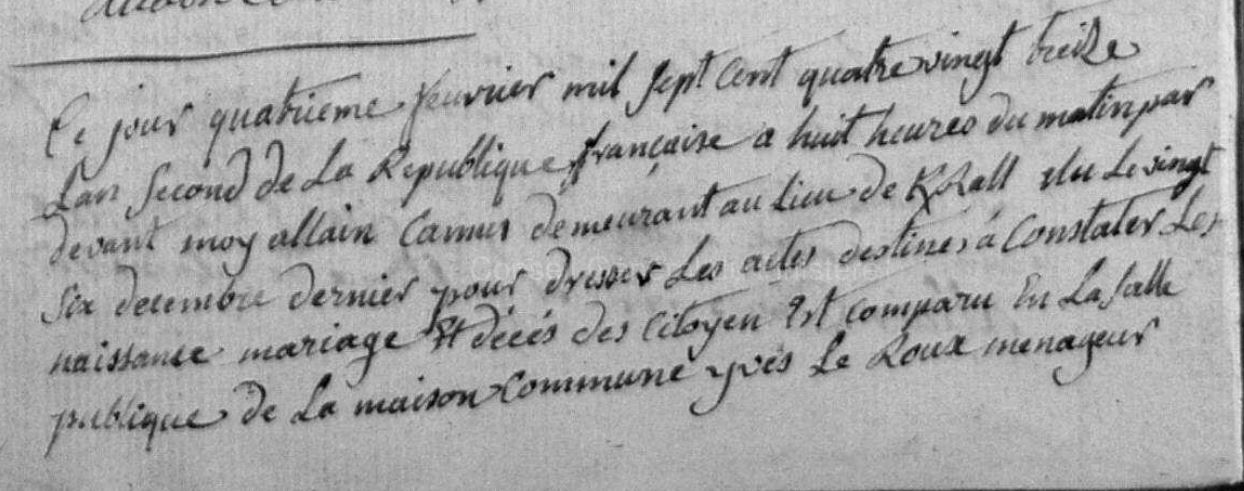 Ce jour quatrieme feuvrier mil sept cent quatre vingt treize
Lan second de La Republique française a huit heures du matin par
devant moy allain Camus demeurant au Lieu de elu Le vingt
six decembre dernier pour dresser Les actes destines á Constater Les
naissance mariage Et décés des Citoyen Est comparu En La Salle
publique de La maison Commune yves Le Roux menageur